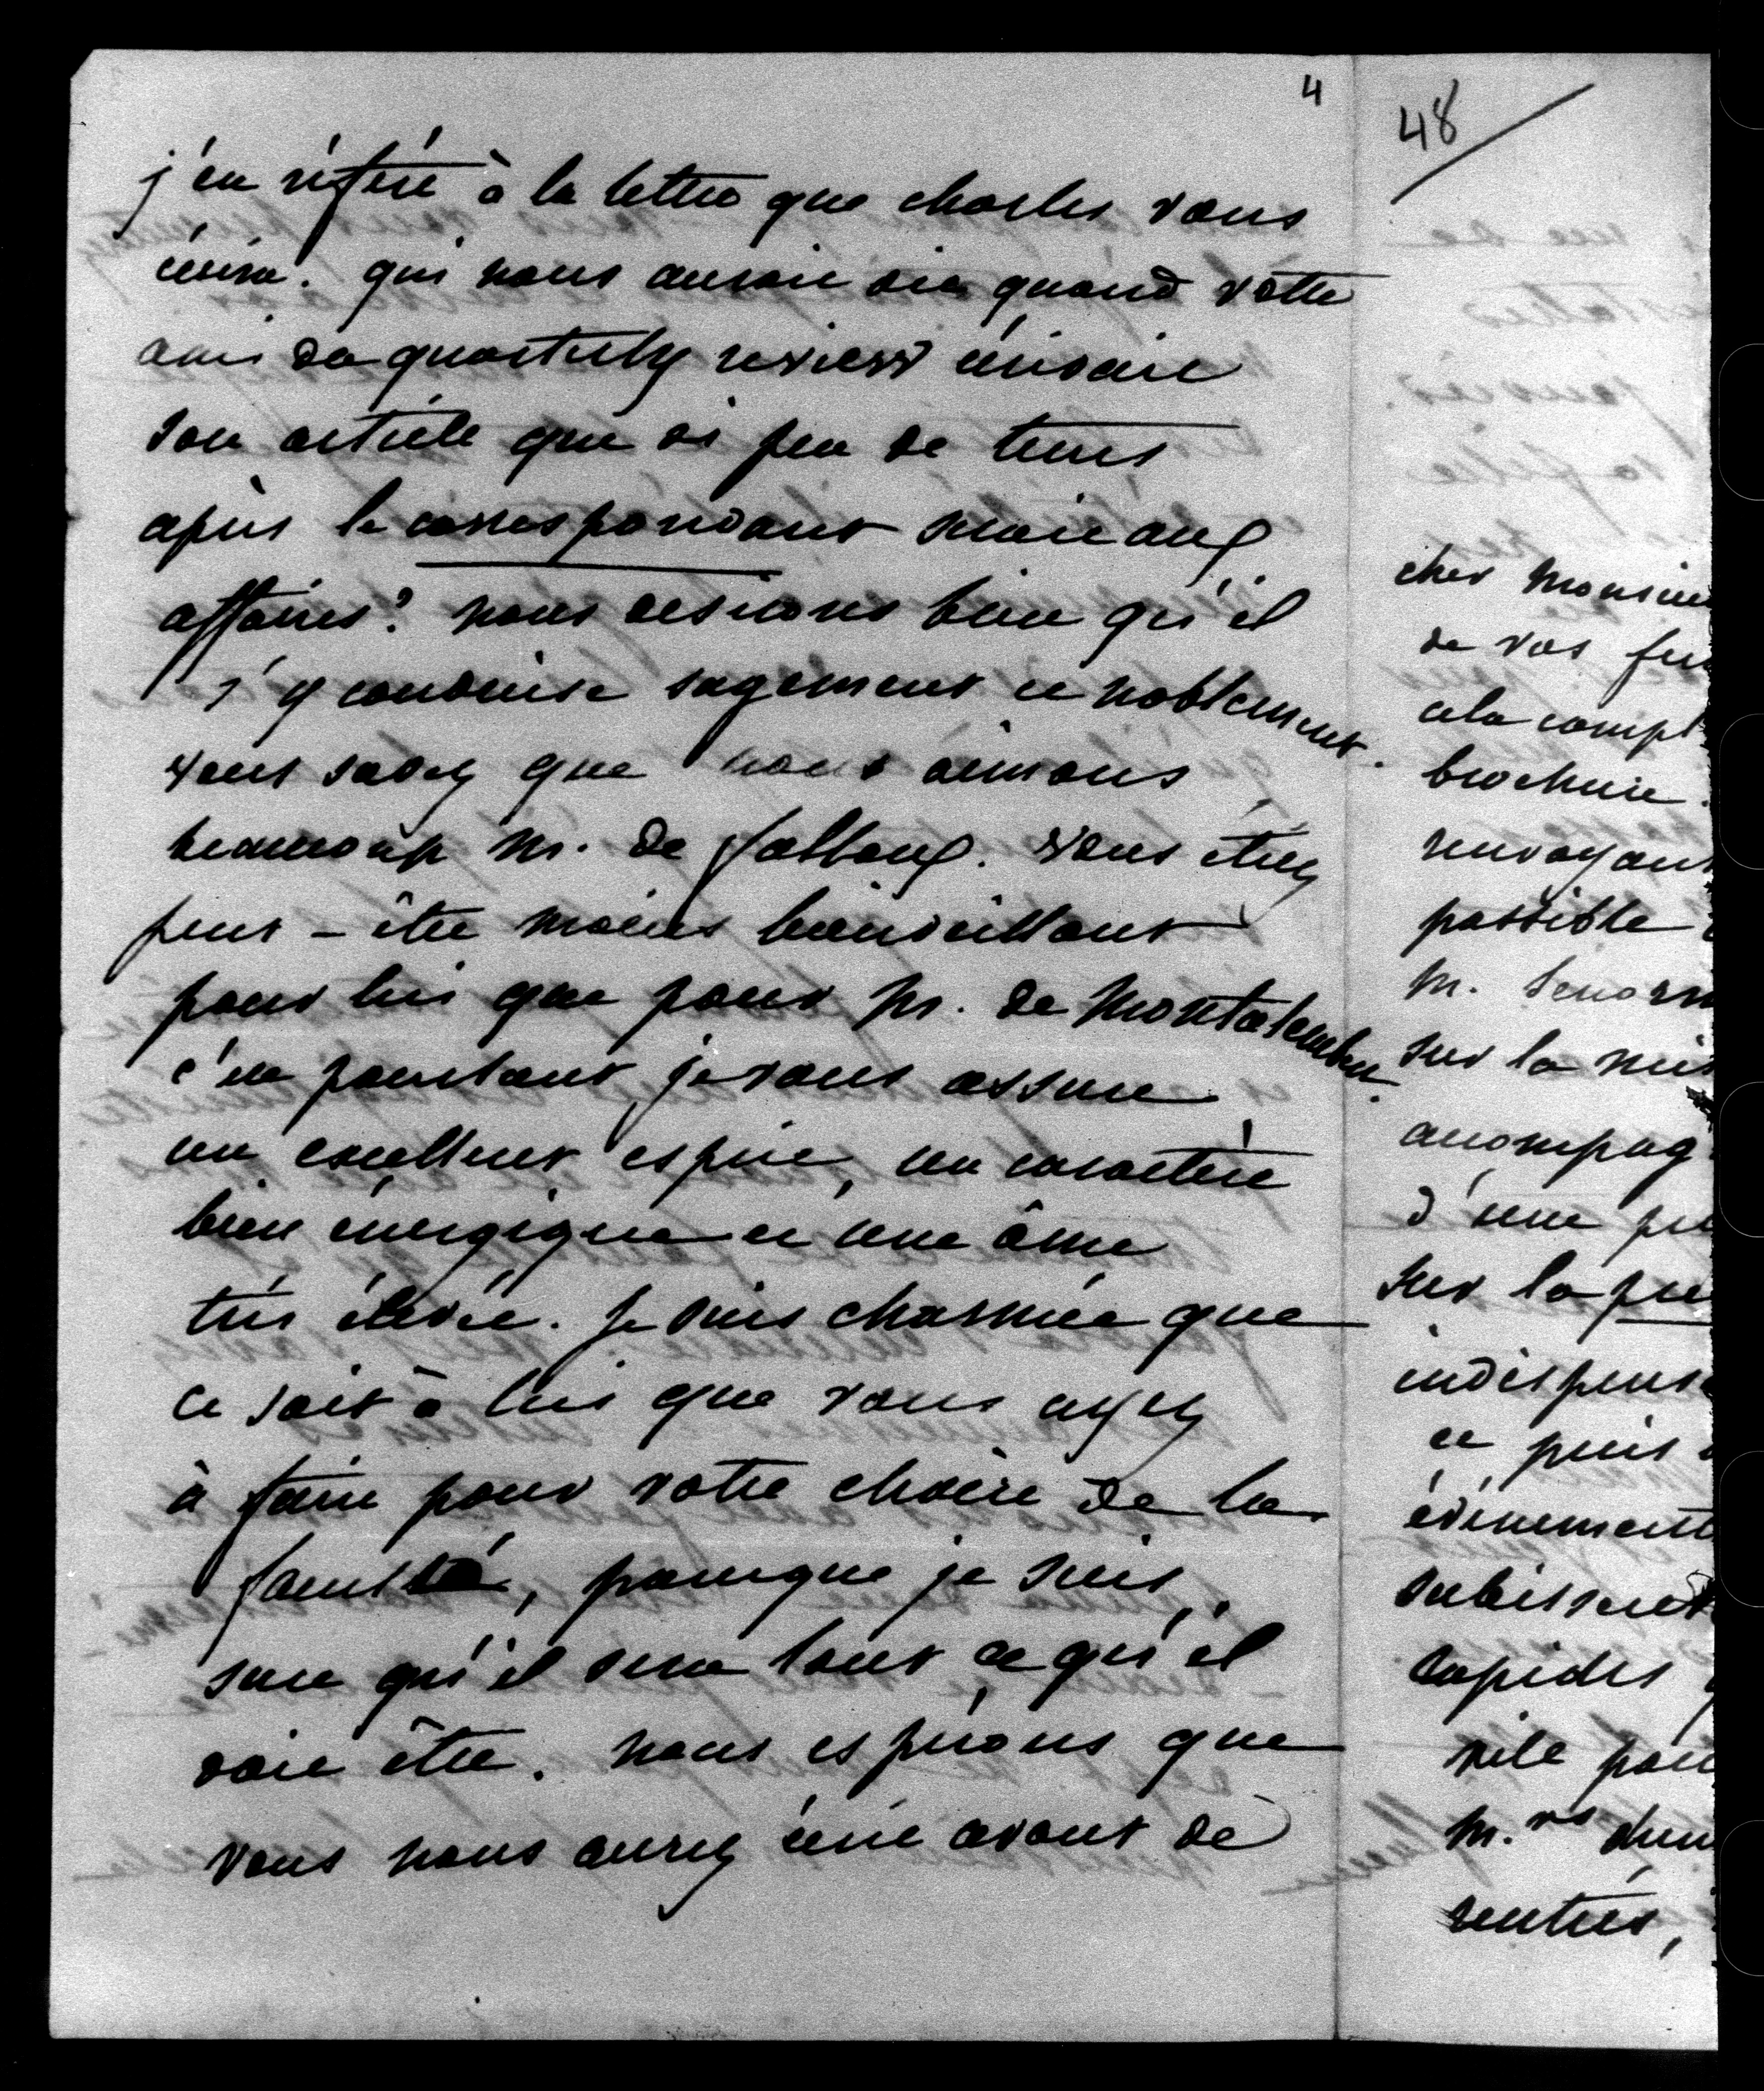 4
j'en réfère à la lettre que charles vous
écrira. qui nous aurait dit quand votre
ami du quarterly review écrivait
son article que si peu de tems
après le correspondant serait aux
affaires? nous desirons bien qu'il
s'y conduise sagement et noblement.
vous savez que nous aimons
beaucoup M. de falloux. vous êtiez
peut-être moins bienveillant
pour lui que pour M. de Montalembert.
c'est pourtant, je vous assure,
un excellent esprit, un caractère
bien énergique et une âme
très élevée. je suis charmée que
ce soit à lui que vous ayez
à faire pour votre chaire de la
faculté, parceque je suis
sure qu'il sera tout ce qu'il
doit être. nous espérons que
vous nous aurez écrit avant de
48
cher Monsieu
de vos
cela compl
brochure.
renvoyant
possible
M. Lenorm
sur la
accompag
d'une
sur la
indispens
et puis
évènement
subissent
rapides
vite pou
M.rs
rentrés,